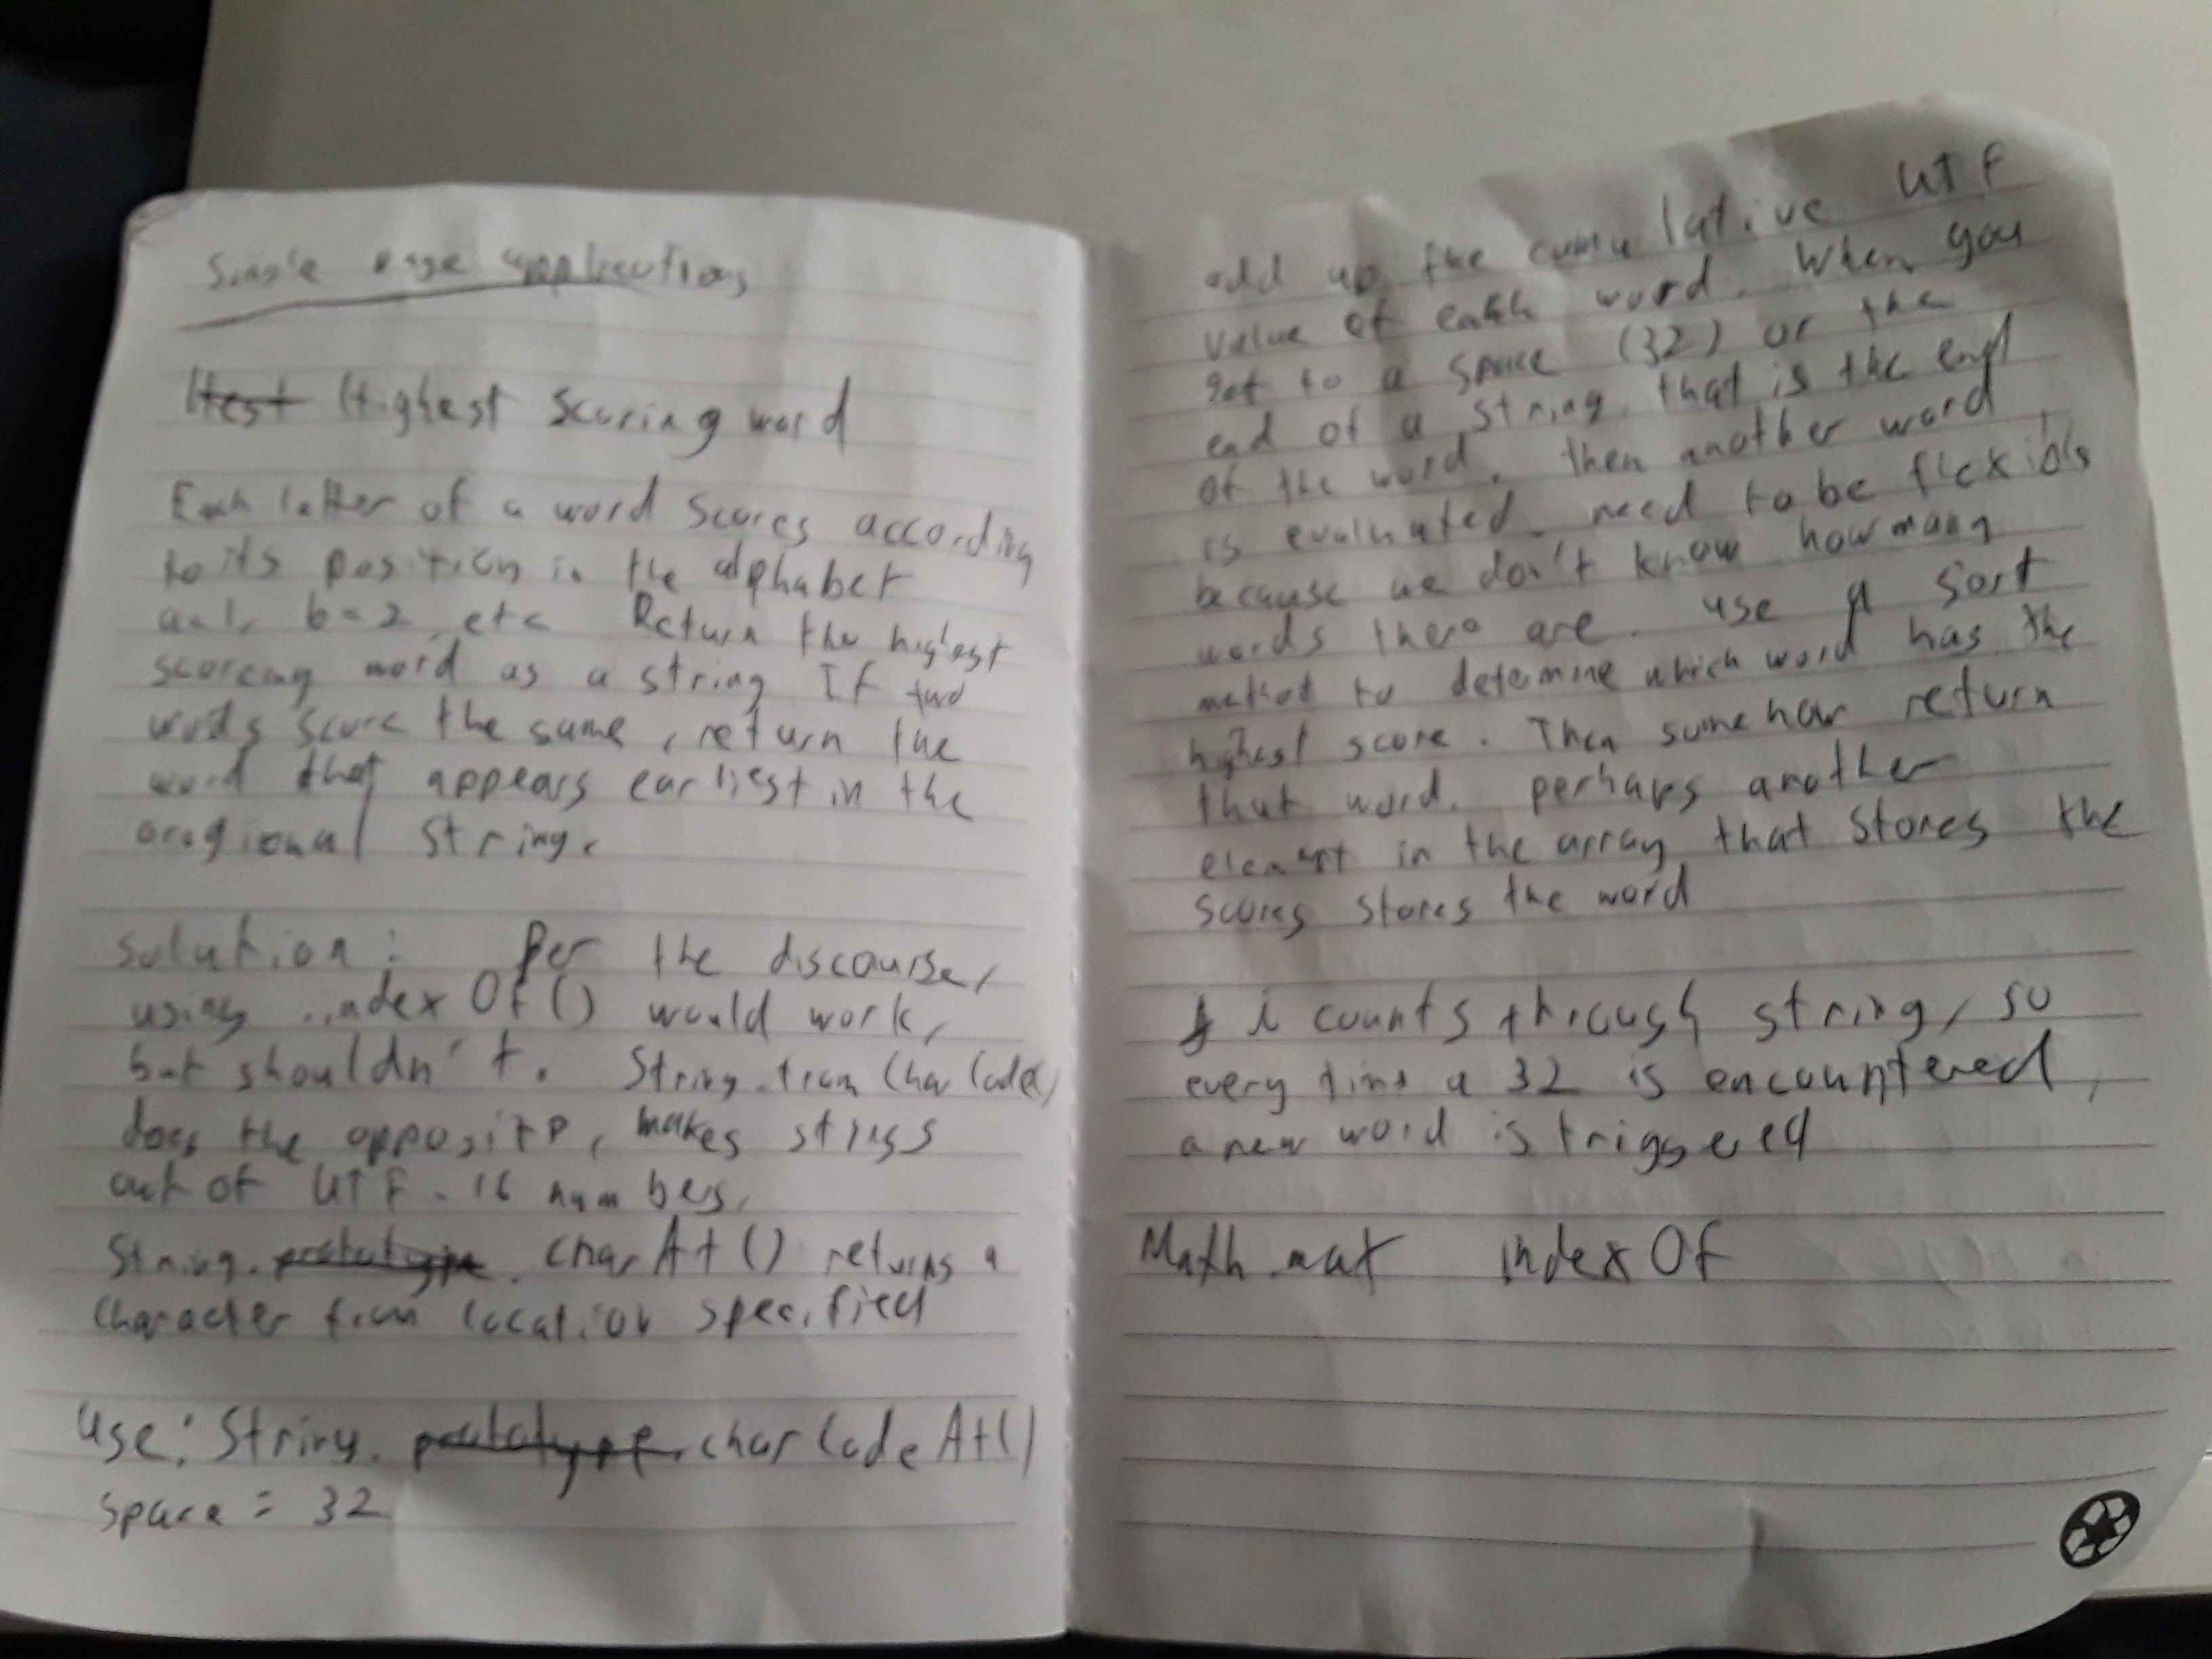 Single page applications
Htest Highest Scoring word
Each letter of a word scores according
to its position in the alphabet
a=1, b=2, etc Return the highest
scoring word as a string If two
words score the same, return the
word that appears earliest in the
orogional string.
solution: Per the discourse,
using .indexOf() would work,
but shouldn't. String.fromCharCode()
does the opposite, makes strings
out of UTF-16 numbers,
String.prototype.charAt() returns a
character from location specified
Use: String.prototype.charCodeAt()
space = 32
add up the cumulative UTF
value of each word. When you
get to a space (32) or the
end of a string, that is the end
of the word. Then another word
is evaluated. need to be flexible
because we don't know how many
words there are. use a sort
method to determine which word has the
highest score. Then somehow return
that word. perhaps another
element in the array that stores the
scores stores the word
i counts through string, so
every time a 32 is encountered,
a new word is triggered
Math.max indexOf